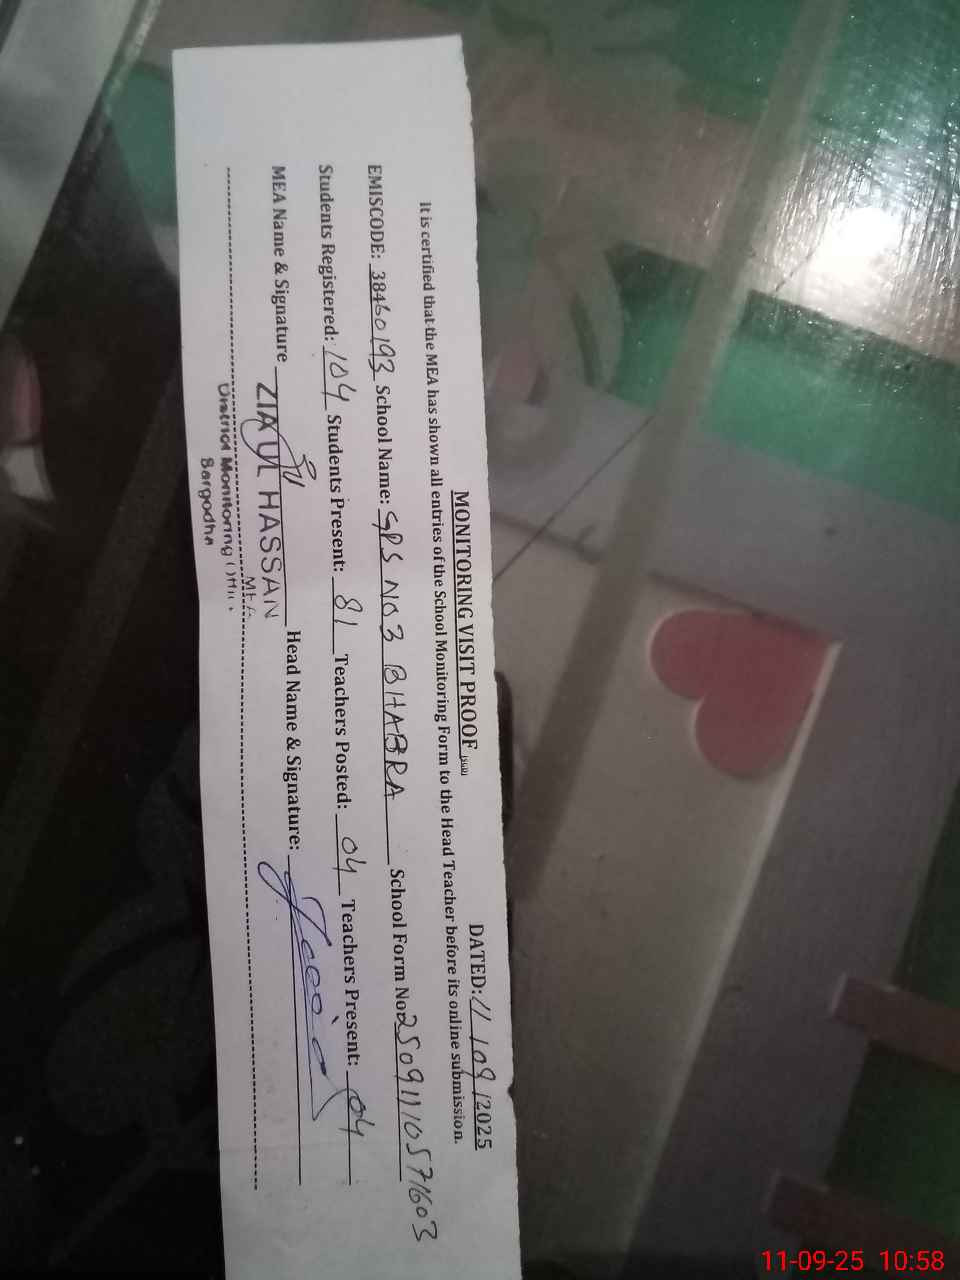 MONITORING VISIT PROOF DATED: 11/09/2025
It is certified that the MEA has shown all entries of the School Monitoring Form to the Head Teacher before its online submission.
EMISCODE: 38460193 School Name: GPS NO3 BHABRA School Form No: 25091110571603
Students Registered: 104 Students Present: 81 Teachers Posted: 04 Teachers Present: 04
MEA Name & Signature Head Name & Signature:
ZIA UL HASSAN
MEA
District Monitoring
Sargodha
11-09-25 10:58